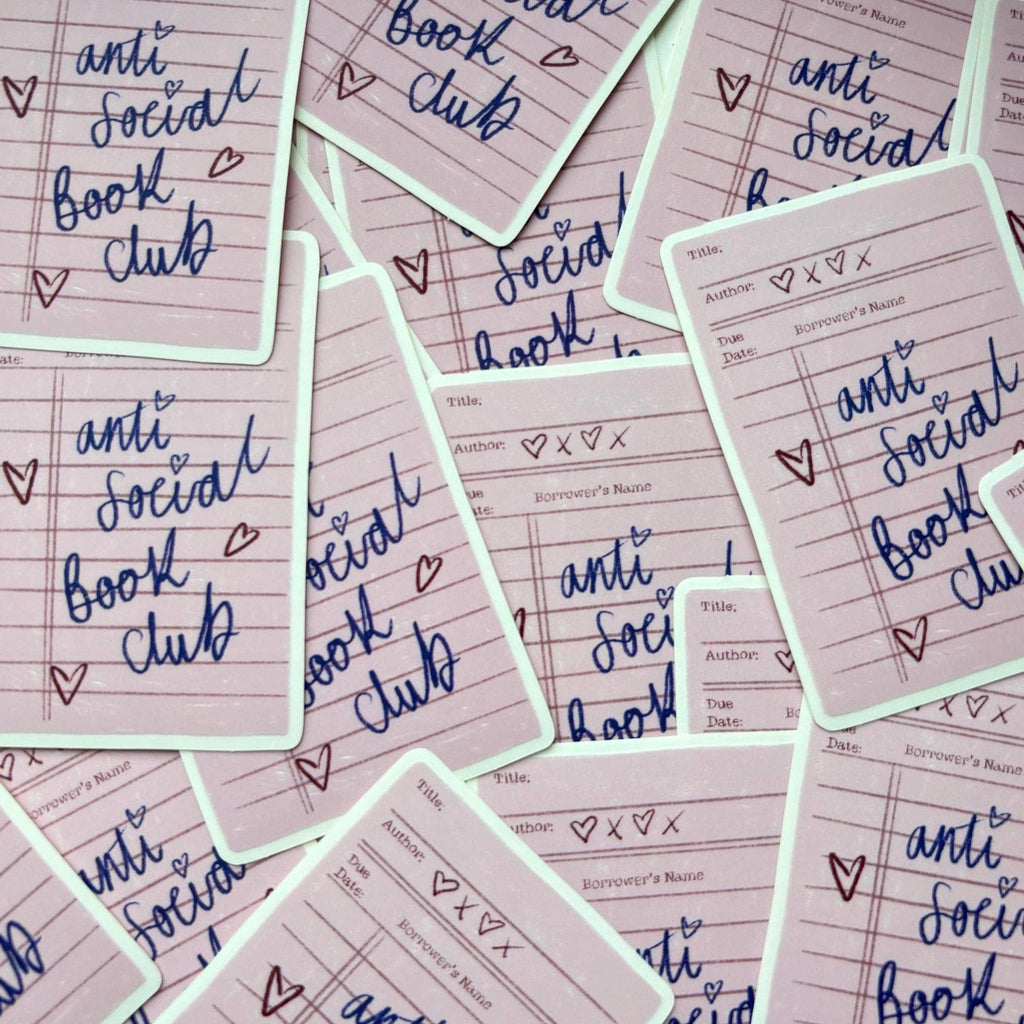 anti
social
Book
Club
Book
Club
Borrower's Name
anti
social
Due
Date:
social
Book
Title:
Author: ♡ x ♡ x
Due Borrower's Name
Date:
anti
social
Book
Date:
anti
social
Book
Club
social
Book
Club
Title:
Author: ♡ x ♡ x
Borrower's Name
anti
Book
Title:
Author:
Due
Date:
Borrower's Name
anti
social
Title:
Author: ♡ x ♡ x
Due Borrower's Name
Date:
Title:
♡ x ♡ x
Borrower's Name
x ♡ x
Due Borrower's Name
Date:
anti
Book